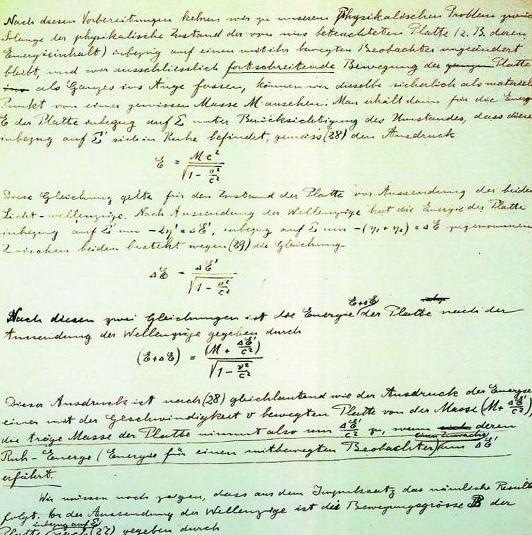 Nach diesen Vorbereitungen kehren wir zu unserem physikalischen Problem
Solange der physikalische Zustand der von uns betrachteten Platte (z. B. deren
Energieinhalt) inbezug auf einen mit ihr bewegten Beobachter ungeändert
bleibt, und wir ausschliesslich fortschreitende Bewegung der Platte
als Ganzes ins Auge fassen, können wir dieselbe sicherlich als
Punkt von einer gewissen Masse M ansehen. Man erhält dann für die
E der Platte inbezug auf Σ unter Berücksichtigung des Umstandes, dass diese
inbezug auf Σ' sich in Ruhe befindet, gemäss (28) den Ausdruck
E = Mc² / √(1 - v²/c²)
Diese Gleichung gelte für den Zustand der Platte vor Aussendung der beiden
Licht-wellenzüge. Nach Aussendung der Wellenzüge hat die Energie der Platte
inbezug auf Σ' um -2η' = ΔE', inbezug auf Σ um -(η₁+η₂) = ΔE zugenommen
Zwischen beiden besteht wegen (29) die Gleichung
ΔE = ΔE' / √(1 - v²/c²)
Nach diesen zwei Gleichungen ist die Energie E+ΔE der Platte nach der
Aussendung der Wellenzüge gegeben durch
(E+ΔE) = (M + ΔE'/c²) / √(1 - v²/c²)
Dieser Ausdruck ist nach (28) gleichlautend wie der Ausdruck der Energie
einer mit der Geschwindigkeit v bewegten Platte von der Masse (M + ΔE'/c²)
die träge Masse der Platte nimmt also um ΔE'/c² zu, wenn deren
Ruh-Energie (Energie für einen mitbewegten Beobachter) um ΔE'
erfährt.
Wir müssen noch zeigen, dass aus dem Impulssatz das nämliche
folgt. Vor der Aussendung der Wellenzüge ist die Bewegungsgrösse B der
Platte inbezug auf Σ nach (27) gegeben durch